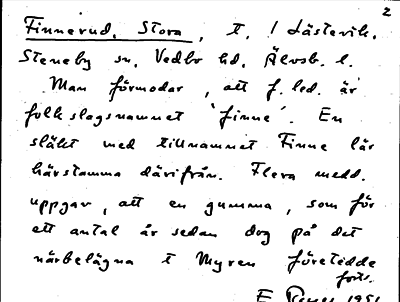 2
Finnerud, Stora, t. / Lästevik,
Steneby sn, Vedbo hd, Älvsb. l.
Man förmodar, att f. led. är
folkslagsnamnet 'finne'. En
släkt med tillnamnet Finne lär
härstamma därifrån. Flera medd.
uppgav, att en gumma, som för
ett antal år sedan dog på det
närbelägna t Myren företedde
forts.
E 1951